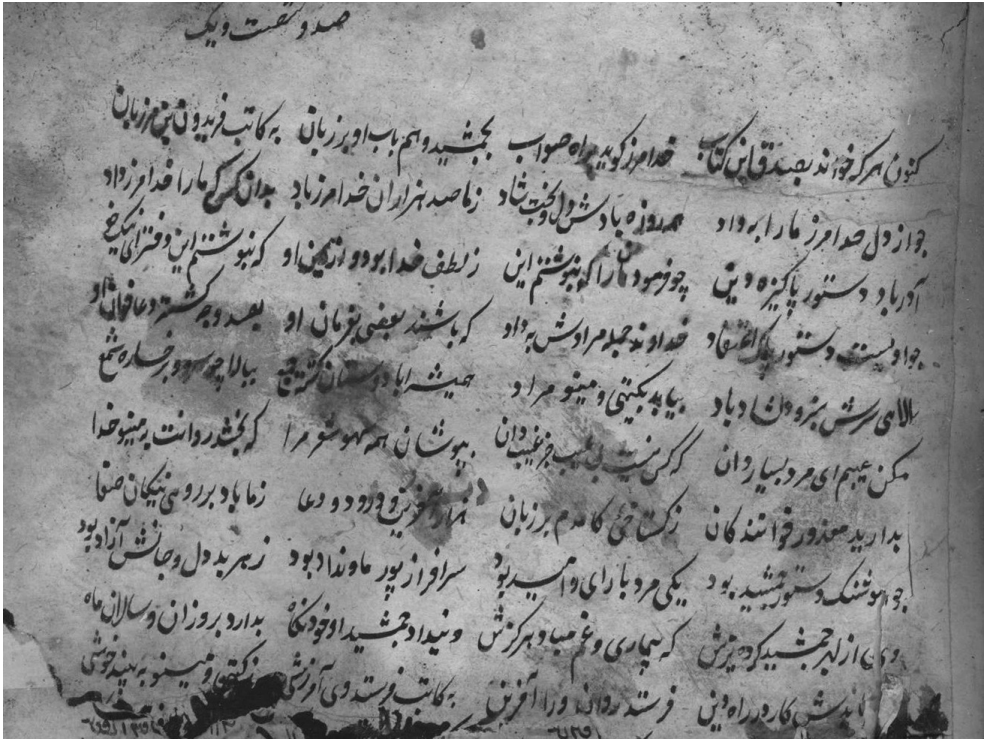 صد و شصت و یک
کنون هر که خواند بصدق این کتاب خدامرز گوید براه صواب بجمشید و هم باب او برزبان به کاتب فریدون بن مرزبان
جواز دل خدامرز ما را به داد همه روزه بادش دل و بخت شاد زما صد هزاران خدامرز باد بدان کس که ما را خدامرز داد
دستور پاکیزه دین چو فرمود ما را که بنوشتم این ز لطف خدا بود و از یمن او که بنوشتم این دفترای نیکخو
دستور پاک اعتقاد خداوند جمله مرادش به داد که باشند بعضی بفرمان او بعهد و
الاهی سرش سبز و دلشاد باد بیابد بگیتی و مینو مراد همیشه بادا چو سرو و رخساره شمع
مکن عیبم ای مرد بسیار دان که کس نیست بی عیب جز غیب دان بپوشان همه سهو شعر مرا که بخشد روانت به مینو خدا
بدارید معذور خوانندگان ز گستاخی کامدم بر زبان هزار آفرین و درود و دعا زما باد بر روی نیکان صفا
چو هوشنگ دستور بود یکی مرد با رای و امید بود سرافراز پور ماونداد بود ز هر بد دل و جانش آزاد بود
وی از بهر جمشید کرده که بیماری و غم مبادا هرگزش جمشید او خود نگاه بدارد بروزان و سالان ماه
کار در راه دین فرستد روان ورا آفرین به کاتب فرستد وی آمرزشی ز گیتی و مینو به بیند خوشی